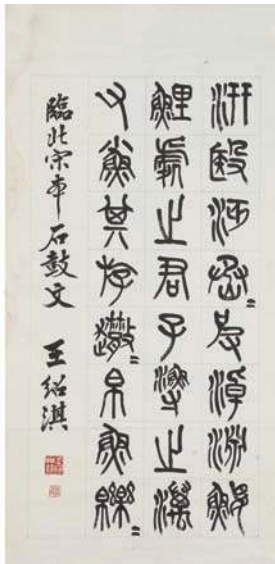 汧殹沔〻烝皮淖淵鰋
鯉處之君子漁之澫
又鯊其斿〻帛魚皪〻
臨北宋本石鼓文 王紹淇